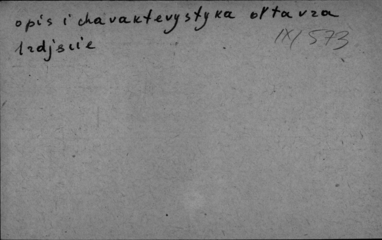 opis i charakterystyka ołtarza
IX/573
Izdjęcie